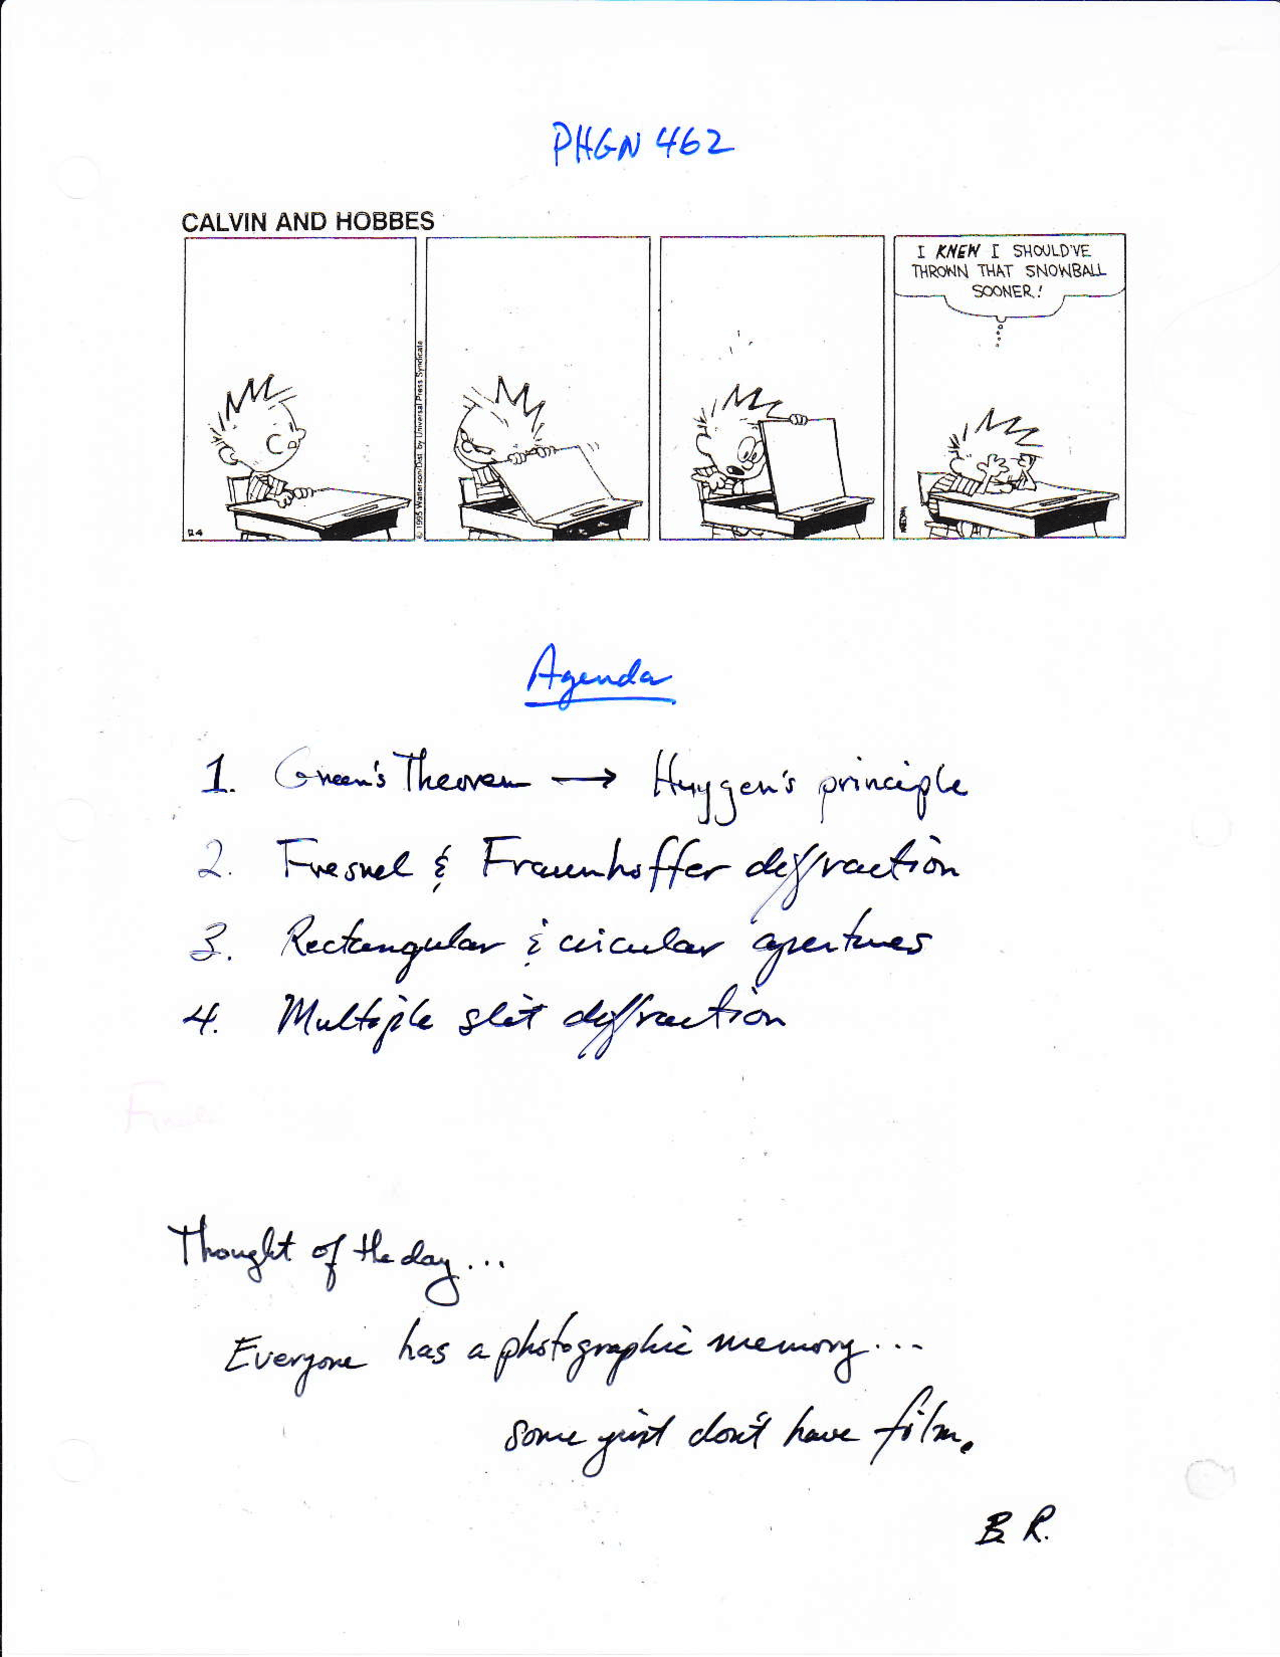 PHGN 462
CALVIN AND HOBBES
I KNEW I SHOULD'VE
THROWN THAT SNOWBALL
SOONER!
© 1995 Watterson/Dist. by Universal Press Syndicate
2-4
Agenda
1. Green's Theorem → Huygen's principle
2. Fresnel & Fraunhoffer diffraction
3. Rectangular & circular apertures
4. Multiple slit diffraction
Thought of the day...
Everyone has a photographic memory...
some just don't have film.
B. R.